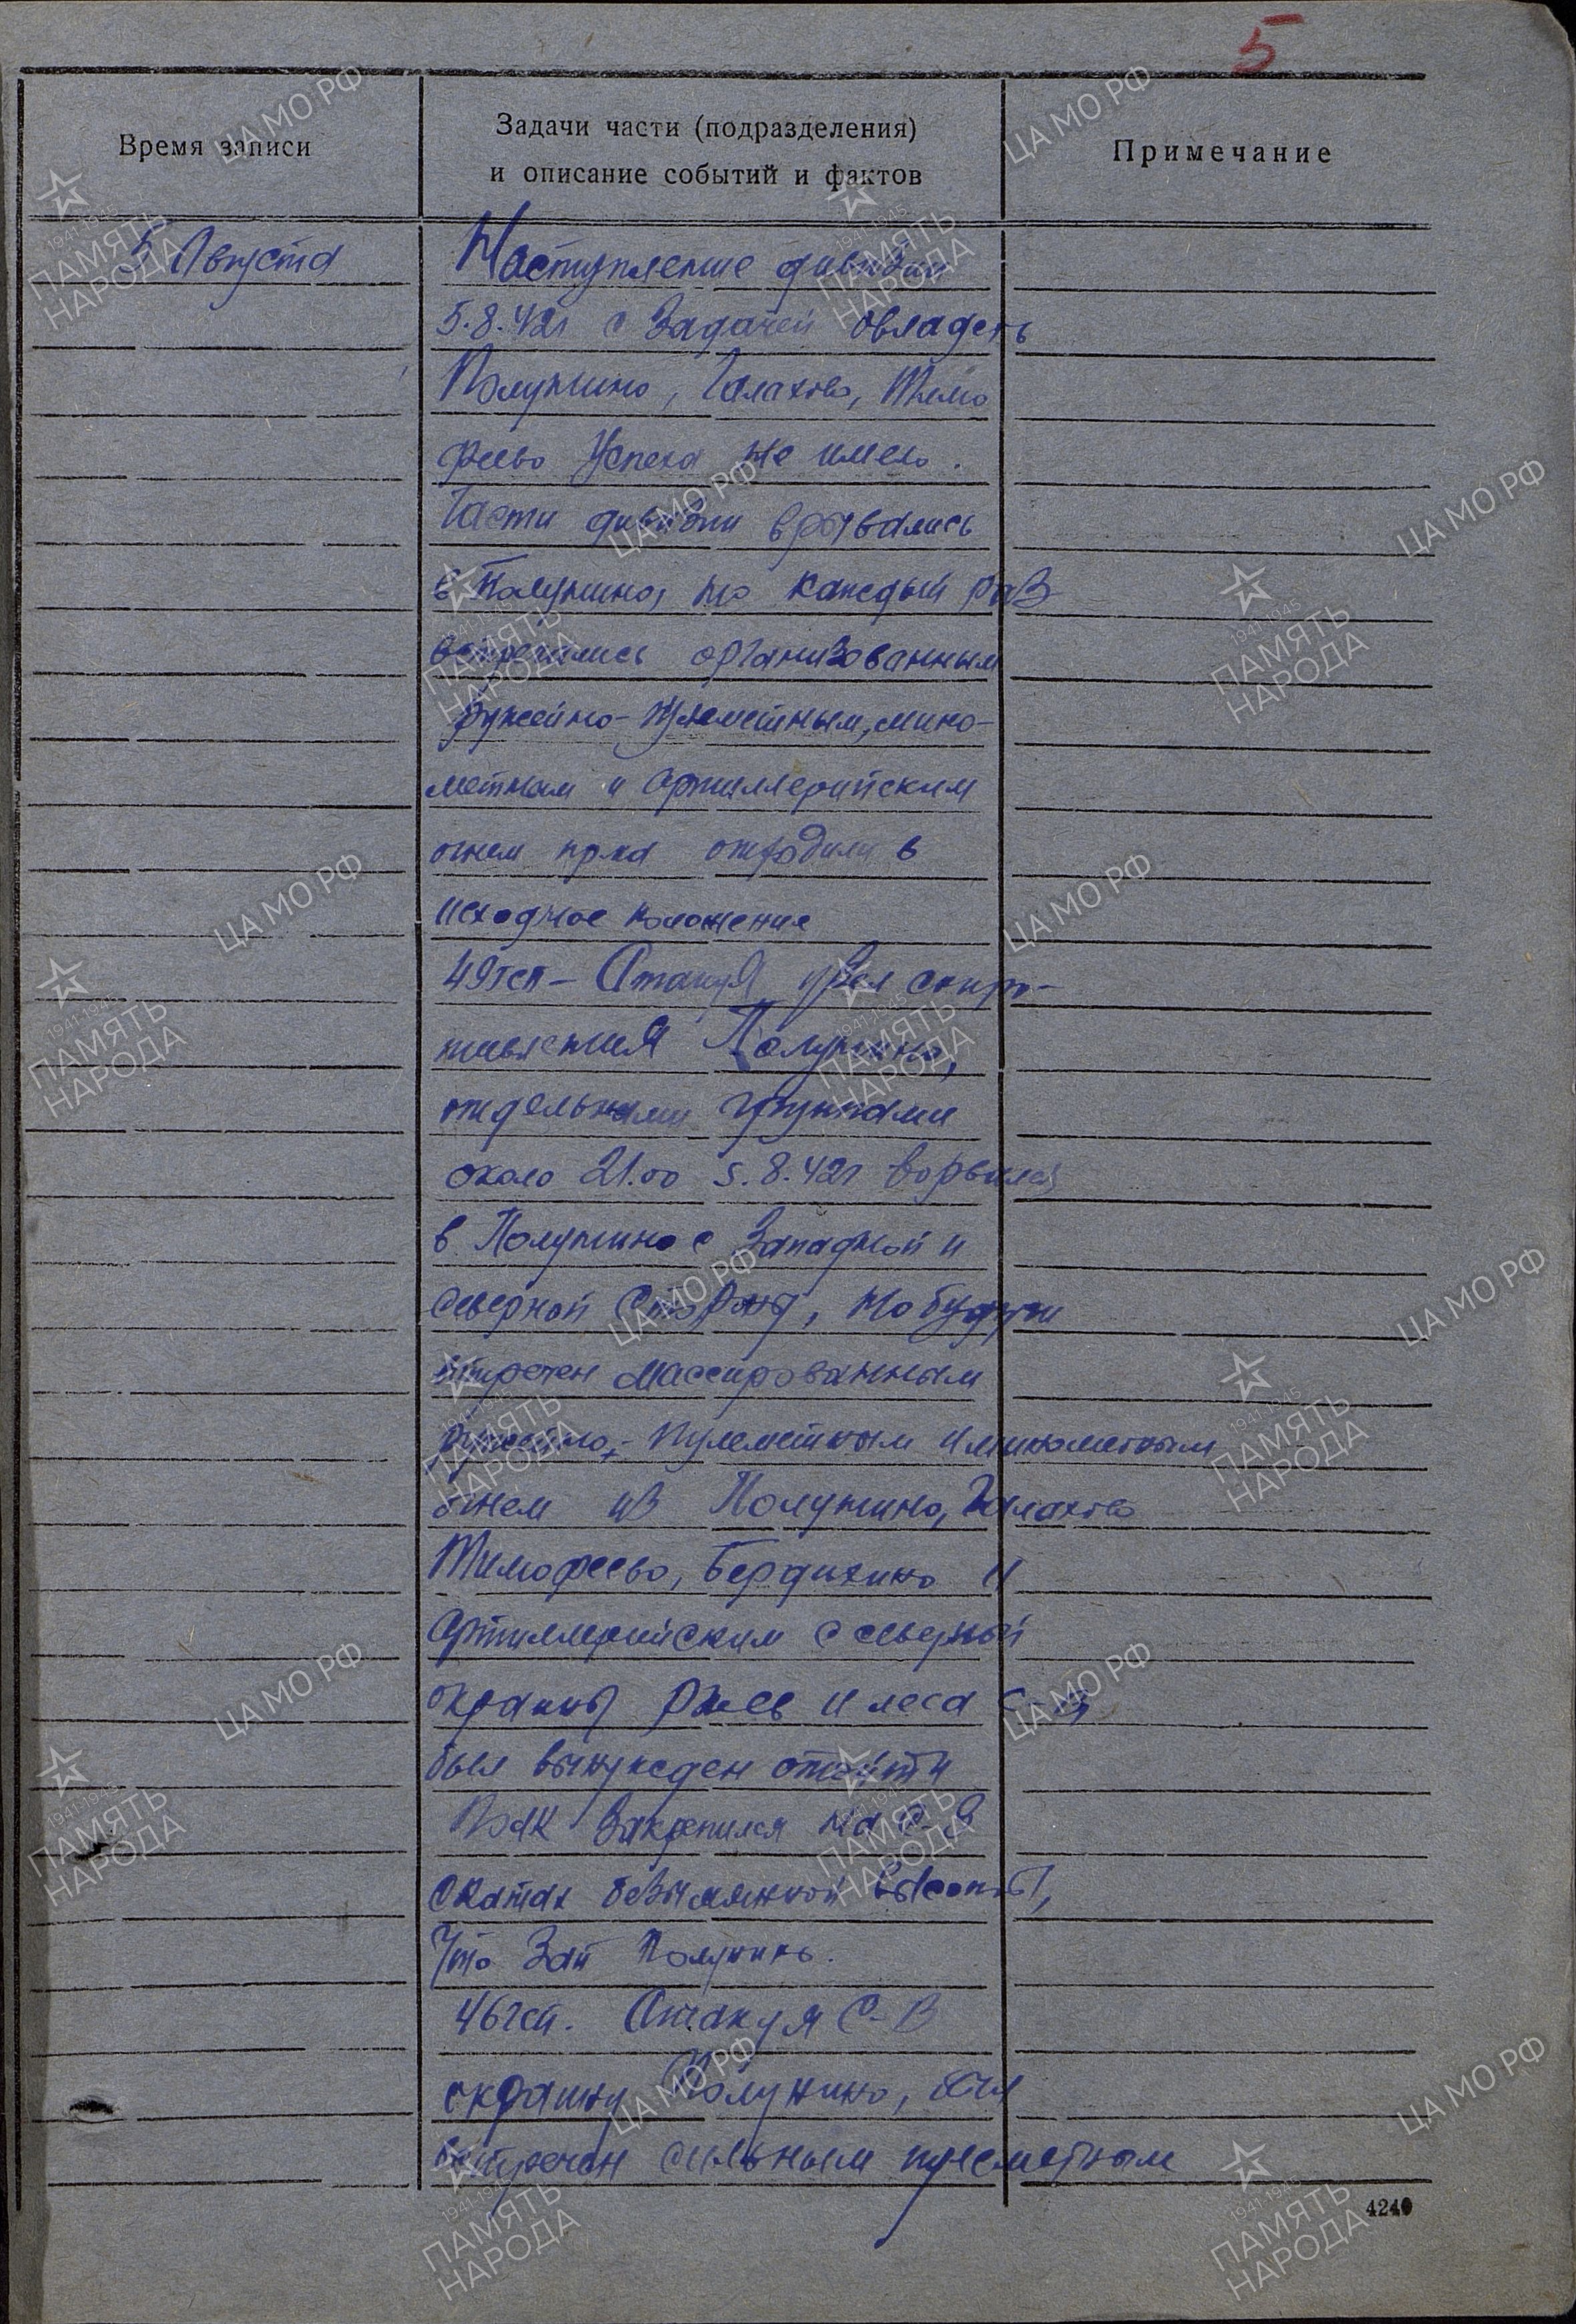 5
Время записи
Задачи части (подразделения)
и описание событий и фактов
Примечание
5 Августа
Наступление дивизии
5.8.42г с задачей овладеть
Полунино, Галахово, Тимо
феево успеха не имело.
Части дивизии врывались
в Полунино, но каждый раз
встречались организованным
ружейно-пулеметным, мино-
метным и артиллерийским
огнем отходили в
исходное положения
49гсп - Атакуя узел сопро-
тивления Полунино,
отдельными группами
около 21.00 5.8.42г ворвался
в Полунино с Западной и
северной стороны, но будучи
встречен массированным
ружейно-пулеметным и минометным
огнем из Полунино, Галахово
Тимофеево, Бердихино и
артиллерийским с северный
окраины Ржев и леса
был вынужден отойти
Полк закрепился на С-З
скатах безымянной высоты,
что зап Полунино.
46гсп. Атакуя С-В
окраину Полунино, был
встречен сильным пулеметным
4240
ЦАМО РФ
1941-1945
ПАМЯТЬ
НАРОДА